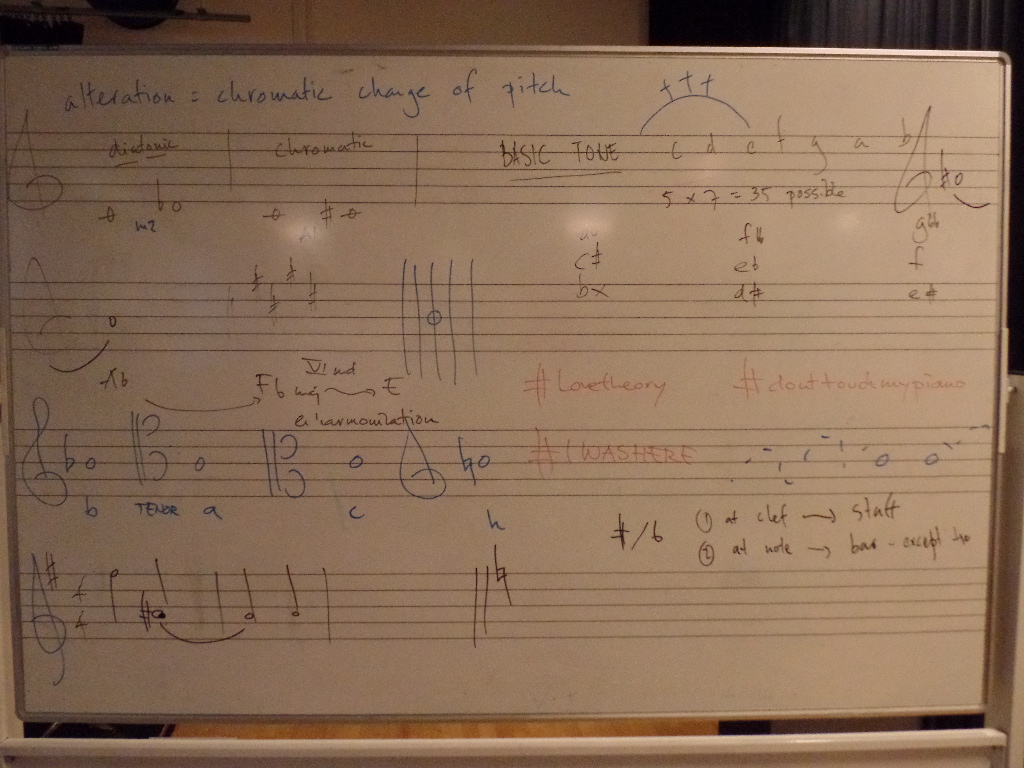 alteration = chromatic change of pitch
+ + +
diatonic chromatic BASIC TONE c d e f g a b
5 x 7 = 35 possible
m2
c# eb f
bx d# e#
Ab Fb maj VI nd E
#lovetheory #donttouchmypiano
#IWASHERE
b TENOR a c h
#/b ① at clef → staff
② at note → bar - except